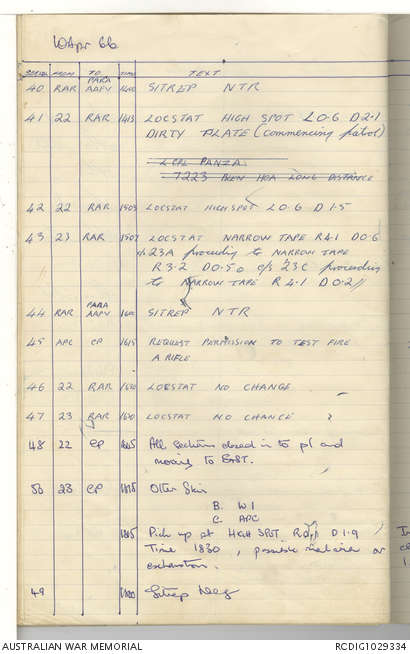 10 Apr 66
SERIAL FROM TO TIME TEXT
40 RAR PARA AAPV 1400 SITREP NTR
41 22 RAR 1413 LOCSTAT HIGH SPOT L0.6 D2.1
DIRTY PLATE (commencing patrol)
L CPL PANZA.
7223 BIEN HOA LONG DISTANCE
42 22 RAR 1503 LOCSTAT HIGHSPOT L0.6 D1.5
43 23 RAR 1507 LOCSTAT NARROW TAPE R4.1 D0.6
c/s 23A proceeding to NARROW TAPE
R3.2 D0.5 c/s 23C proceeding
to NARROW TAPE R4.1 D0.2//
44 RAR PARA AAPV 1600 SITREP NTR
45 APC CP 1615 REQUEST PERMISSION TO TEST FIRE
A RIFLE
46 22 RAR 1630 LOCSTAT NO CHANGE
47 23 RAR 1630 LOCSTAT NO CHANGE
48 22 CP All sections closed in to pl and
moving to EAST.
50 23 CP Otter Skin
B. W1
C. APC
1815 Pick up at HIGH SPOT D1.9
Time 1830, possible or
exhaustion.
49 Sitrep Neg
AUSTRALIAN WAR MEMORIAL
RCDIG1029334